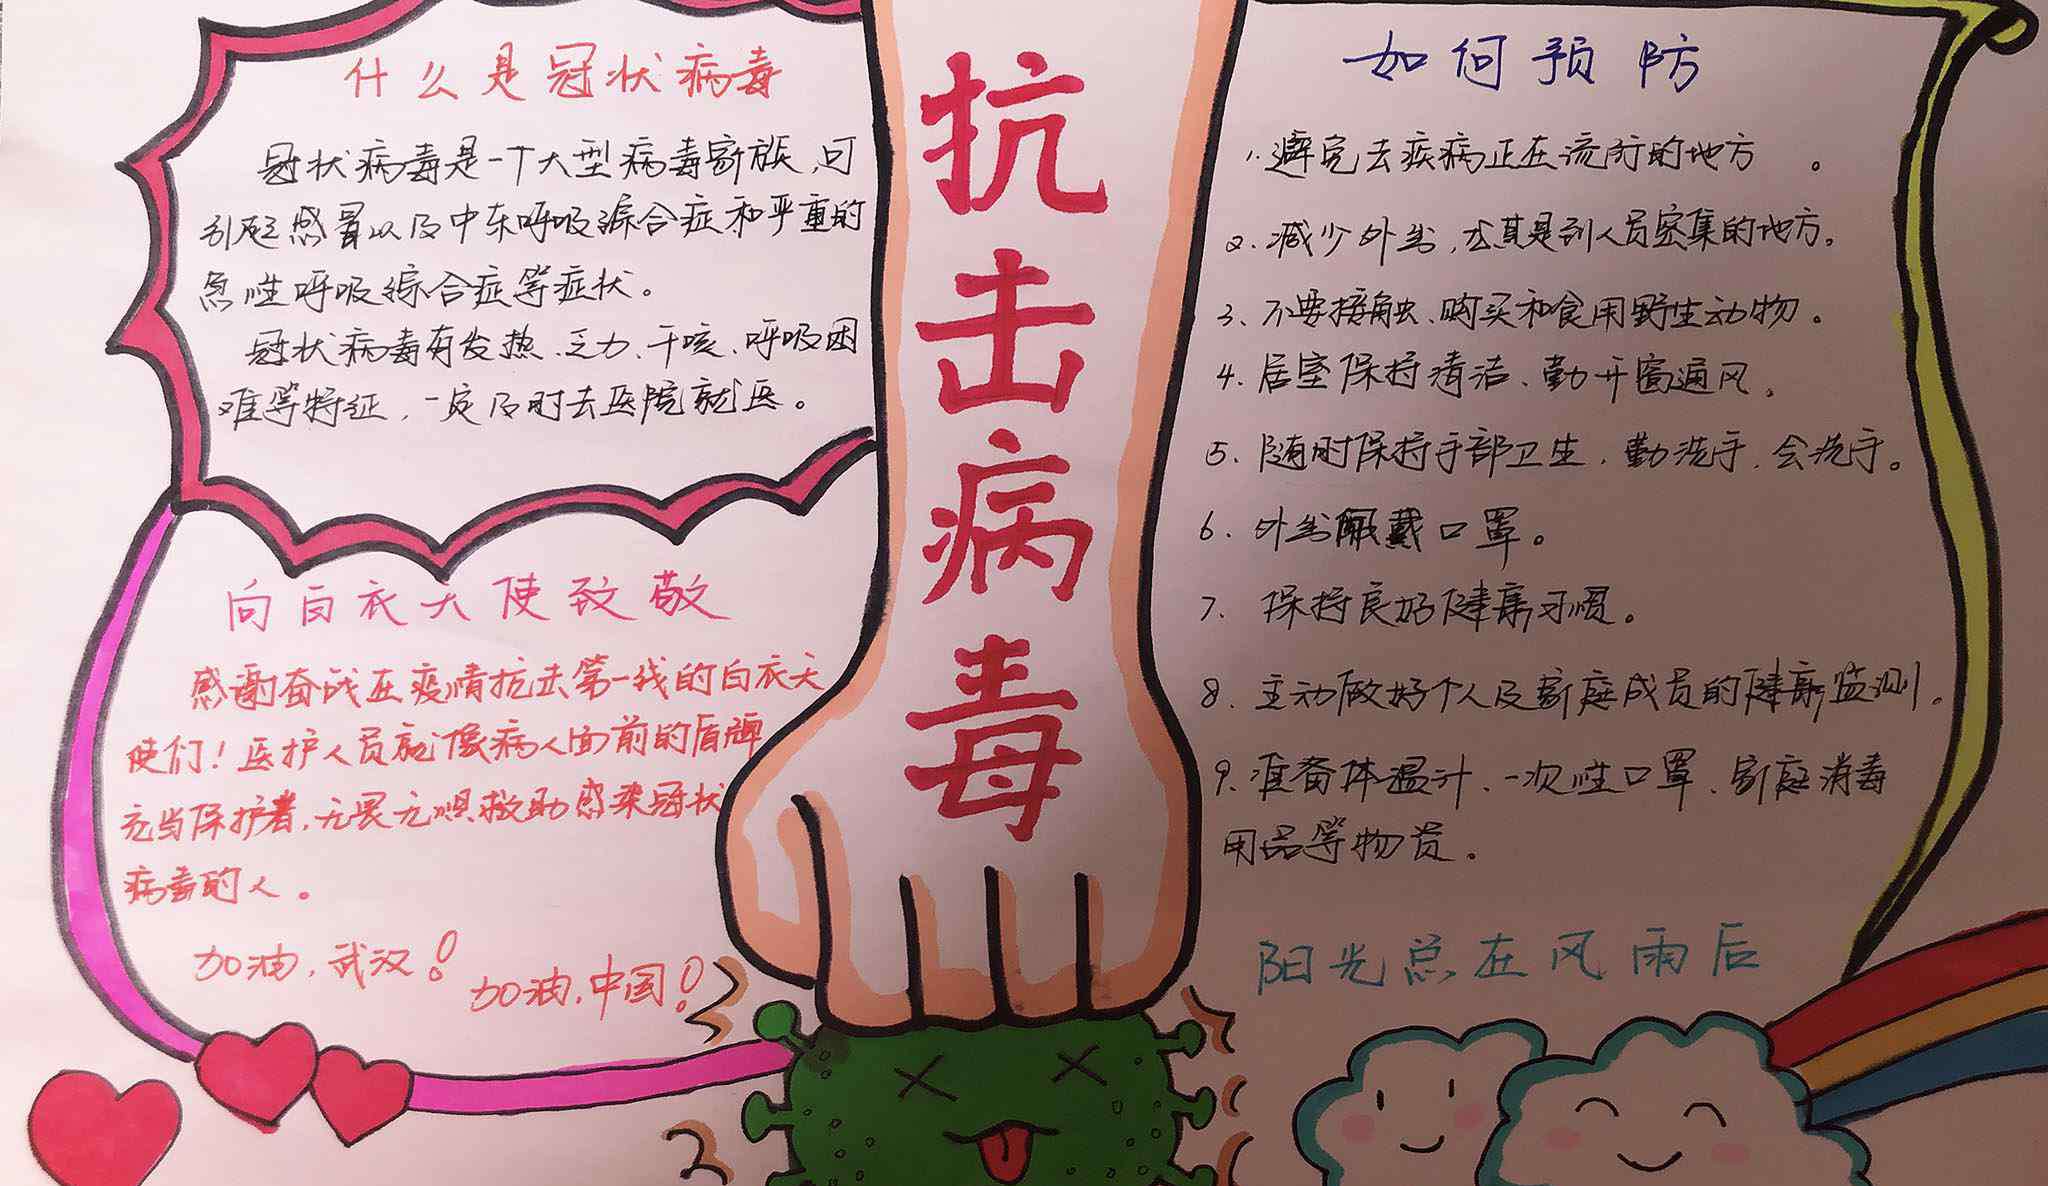 什么是冠状病毒
冠状病毒是一个大型病毒家族,可
引起感冒以及中东呼吸综合症和严重的
急性呼吸综合症等症状。
冠状病毒有发热、乏力、干咳、呼吸困
难等特征,一定及时去医院就医。
向白衣天使致敬
感谢奋战在疫情抗击第一线的白衣天
使们!医护人员就像病人面前的盾牌
充当保护着,无畏无惧救助感染冠状
病毒的人。
加油,武汉!
加油,中国!
抗击病毒
如何预防
1.避免去疾病正在流行的地方。
2.减少外出,尤其是到人员密集的地方。
3、不要接触、购买和食用野生动物。
4.居室保持清洁、勤开窗通风。
5.随时保持手部卫生,勤洗手,会洗手。
6.外出佩戴口罩。
7.保持良好健康习惯。
8.主动做好个人及家庭成员的健康监测。
9.准备体温计、一次性口罩、家庭消毒
用品等物资。
阳光总在风雨后